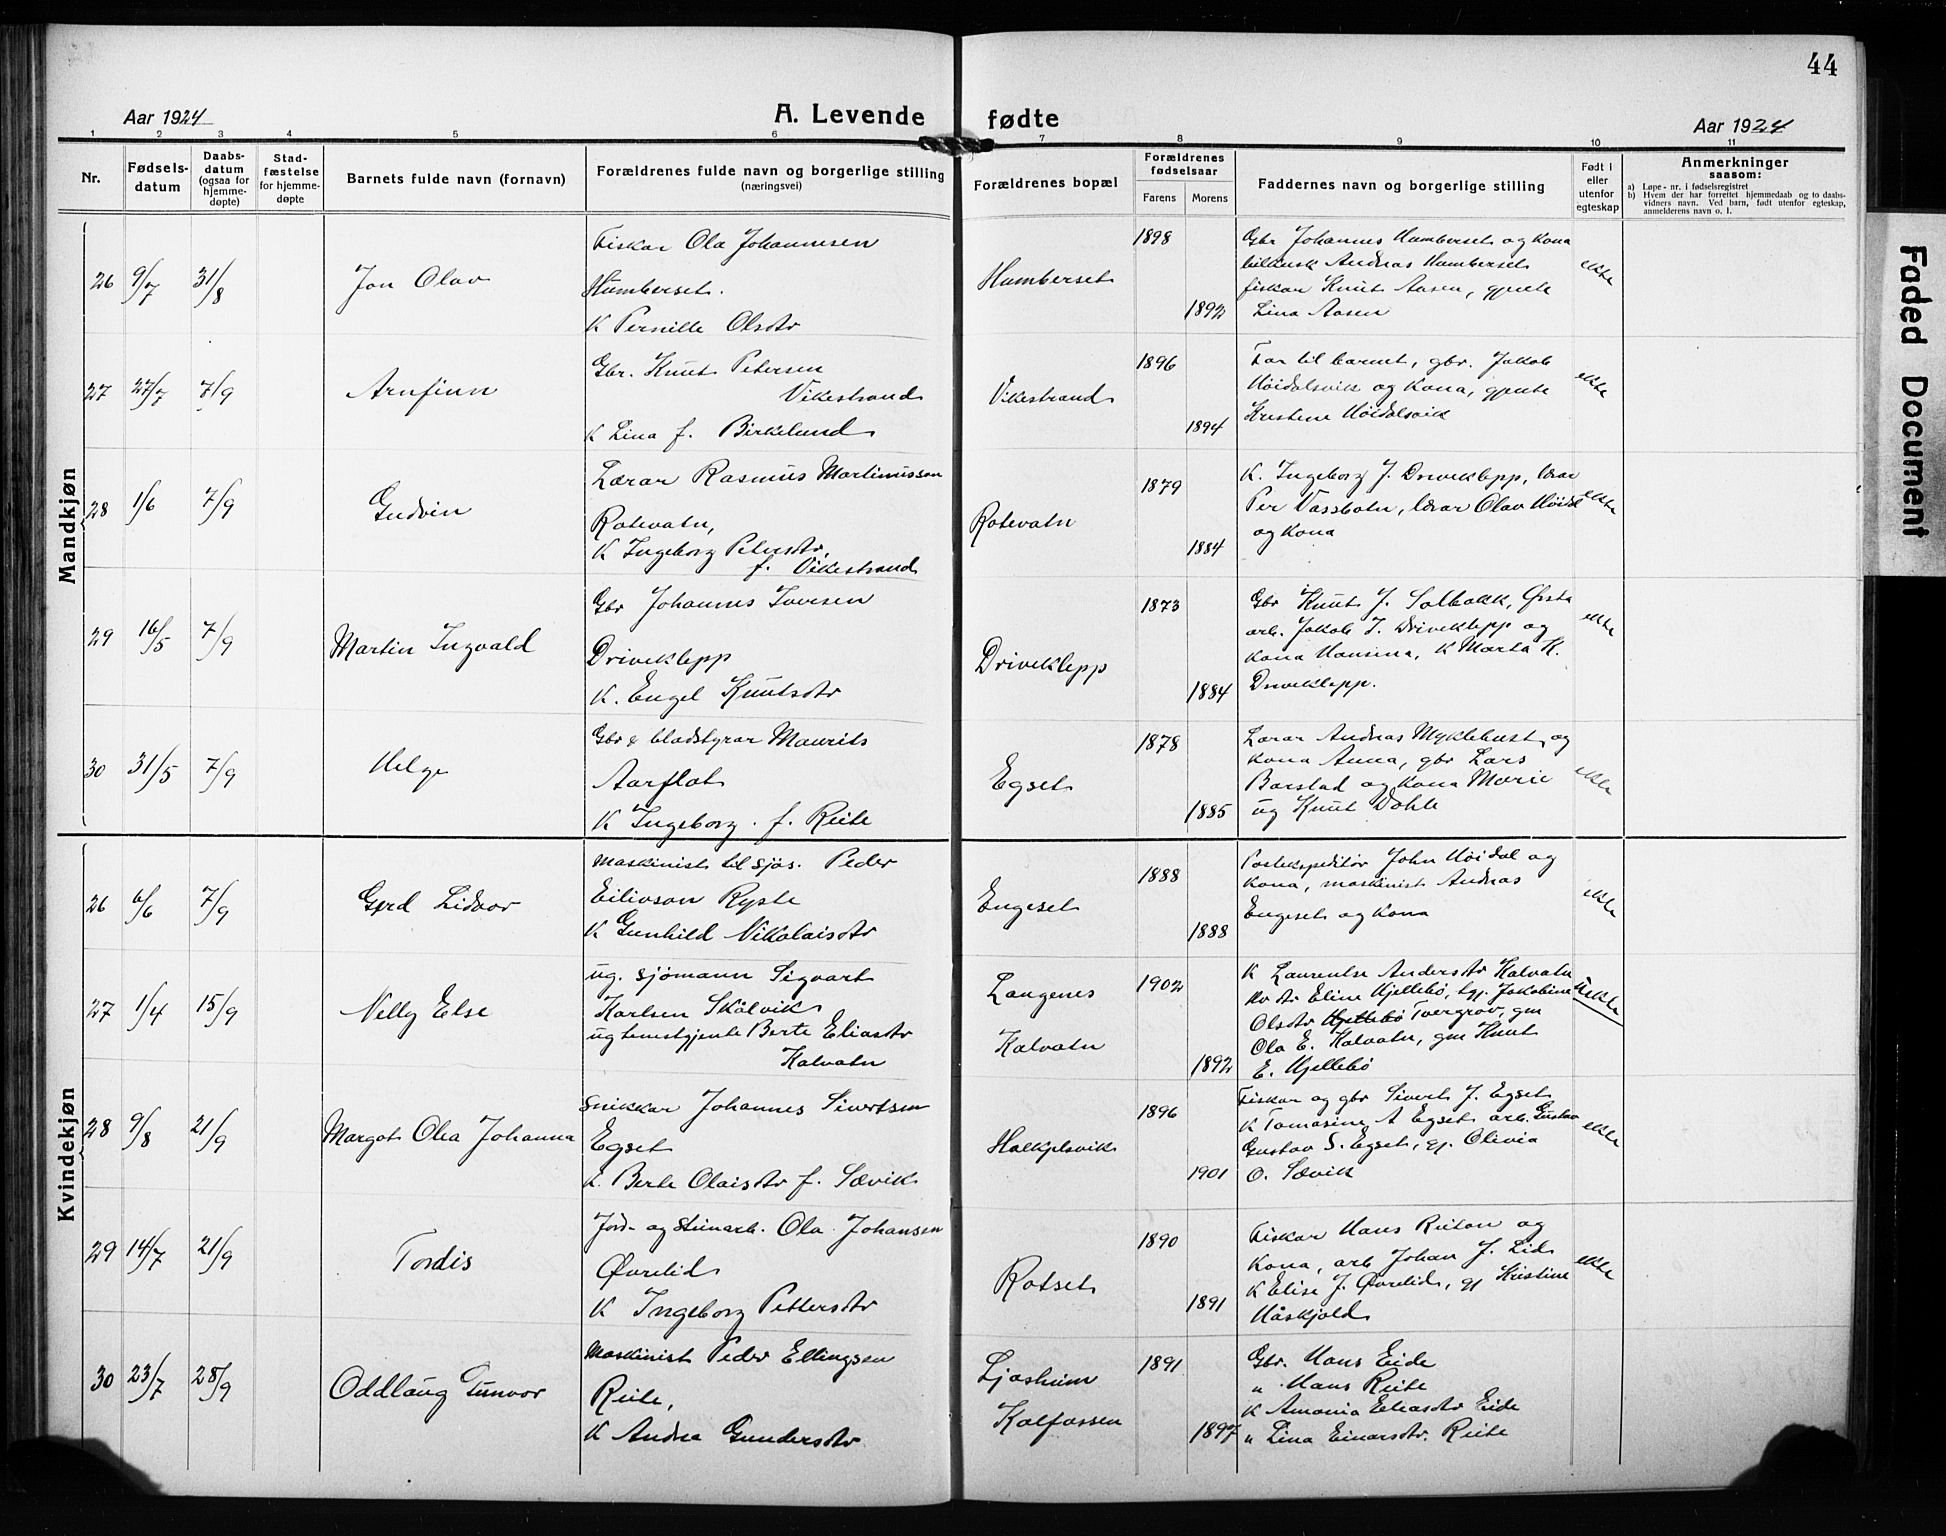 44
Aar 1924
A. Levende fødte
Aar 1924
1 2 3 4 5 6 7 8 9 10 11
Nr.
Fødsels-datum
Daabs-datum (ogsaa for hjemme-døpte)
Stad-fæstelse for hjemme-døpte
Barnets fulde navn (fornavn)
Forældrenes fulde navn og borgerlige stilling (næringsvei)
Forældrenes bopæl
Forældrenes fødselsaar
Farens Morens
Faddernes navn og borgerlige stilling
Født i eller utenfor egteskap
Anmerkninger saasom:
a) Løpe-nr. i fødselsregistret
b) Hvem der har forrettet hjemmedaab og to daabs-vidners navn. Ved barn, født utenfor egteskap, anmelderens navn o. l.
Mandkjøn
26 9/7 31/8 Jon Olav
Fiskar Ola Johannesen
Humberset.
K Pernille Olsdtr
Humberset
1898
1892
Gbr Johannes Humberset og kona
Andreas Humberset
fiskar Knut Aasen, gjente
Lina Aasen
ekte
27 27/7 7/9 Arnfinn
Gbr. Knut Petersen
Vikestrand
K Lina f. Birkelund
Vikestrand
1896
1894
Far til barnet, gbr. Jakob
Høidalsvik og kona, gjente
Kristine Høidalsvik
ekte
28 1/6 7/9 Gudvin
Lærar Rasmus Martinussen
Rotevatn,
K Ingeborg Petersdtr,
f. Vikestrand
Rotevatn
1879
1884
K. Ingeborg J. Driveklepp, lærar
Per Vassbotn, lærar Olav Høidal
og kona
ekte
29 16/5 7/9 Martin Ingvald
Gbr Johannes Iversen
Driveklepp
K. Engel Knutsdtr
Driveklepp
1873
1884
Gbr Knut J. Solbakk, Ørsta
arb. Jakob J. Driveklepp og
kona Hansina, K Marta K.
Driveklepp.
ekte
30 31/5 7/9 Helge
Gbr & bladstyrar Maurits
Aarflot
K Ingeborg f. Reite
Egset
1878
1885
Lærar Andreas Myklebust og
kona Anna, gbr Lars
Barstad og kona Marie
ug Knut Dahle
ekte
Kvindekjøn
26 6/6 7/9 Gerd Lidvor
Maskinist til sjøs. Peder
Eilivson Ryste
K Gunhild Nikolaisdtr
Engeset
1888
1888
Postekspeditør John Høidal og
kona, maskinist Andreas
Engeset og kona
ekte
27 1/4 15/9 Nelly Else
ug. sjømann Sigvart
Karlsen Skålvik
ug tenestgjente Berte Eliasdtr
Kalvatn
Langenes
Kalvatn
1902
1892
K Laurentse Andersdtr Kalvatn
Eline Hjellebö, tgj. Jakobine
Olsdtr Hjellebö Tvergrov, gm
Ola E. Kalvatn, gm Knut
E. Hjellebö
Uekte
28 9/8 21/9 Margot Olea Johanna
Snikkar Johannes Sivertsen
Egset
K. Berte Olaisdtr f. Sævik
Halkjelsvik
1896
1901
Fiskar og gbr Sivert J. Egset
K Tomasine A Egset arb. Gustav
Gustav S. Egset, gj. Olivia
O. Sævik
ekte
29 14/7 21/9 Tordis
Jord- og stenarb. Ola Johansen
Øvrelid
K Ingeborg Pettersdtr
Rotset
1890
1891
Fiskar Hans Reiton og
kona, arb Johan J. Lid
K Elise J. Øvrelid, gj Kristine
Håskjold
ekte
30 23/7 28/9 Oddlaug Gunvor
Maskinist Peder Ellingsen
Reite,
K Andrea Gundersdtr
Ljosheim
Kalfossen
1891
1897
Gbr. Hans Eide
" Hans Reite
K Amania Eliasdtr Eide
" Lina Einarsdtr. Reite
Faded Document